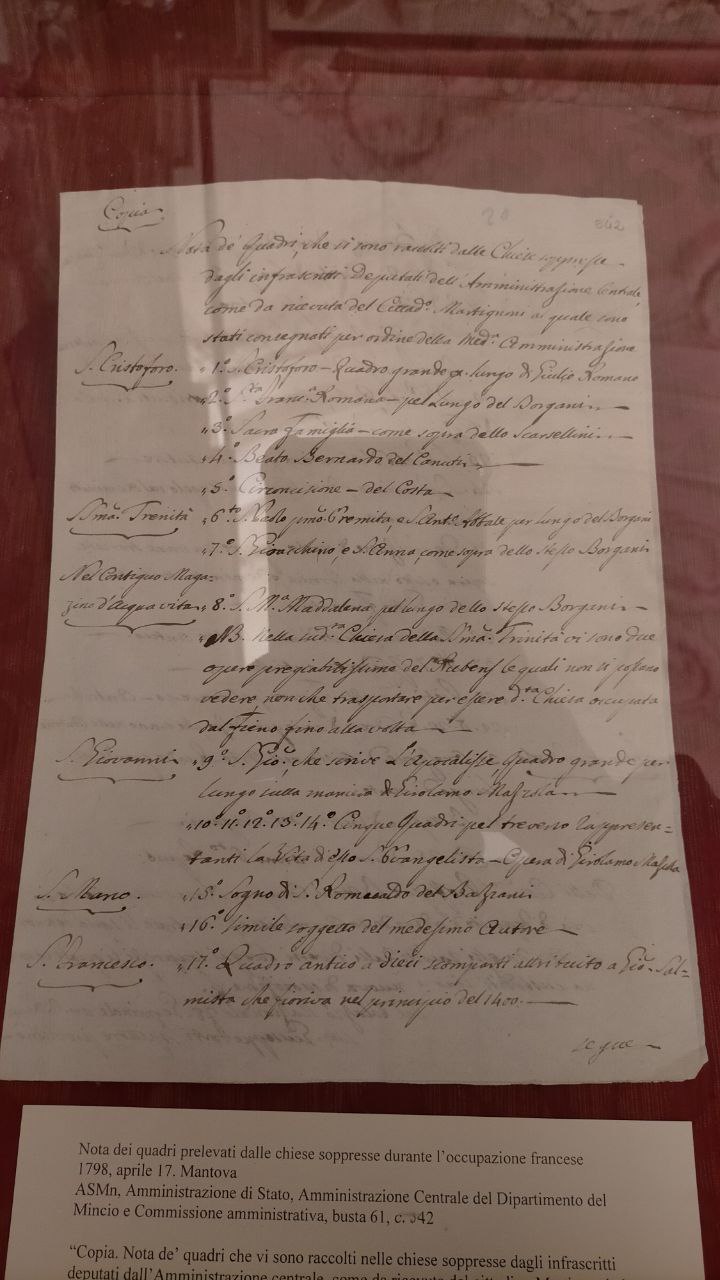 Copia
20
342
Nota de' Quadri, che si sono raccolti dalle Chiese soppresse
dagli infrascritti Deputati dell'Amministrazione Centrale,
come da ricevuta del Cittad.o Martignoni ai quale sono
stati consegnati per ordine della Med.a Amministrazione
S. Cristoforo. „1.o S. Cristoforo – Quadro grande p. lungo di Giulio Romano
„2.o S.ta Franc.a Romana – pel lungo del Borgani –
„3.o Sacra Famiglia – come sopra dello Scarsellini –
„4.o Beato Bernardo del Canuti –
„5.o Circoncisione – del Costa –
SS.ma Trenità „6.to S. Paolo pmo. Eremita, e S. Ant.o Abbate per lungo del Borgani
„7.o S. Gioacchino, e S. Anna, come sopra dello stesso Borgani
Nel Contiguo Maga=
zino d'Acqua vita „8.o S. M.a Maddalena pel lungo dello stesso Borgani –
NB. Nella sud.ta Chiesa della SS.ma Trinità vi sono due
opere pregiatibissime del Rubens le quali non si possano
vedere, non che trasportare per essere d.ta Chiesa occupata
dal Fieno fino alla volta –
S. Giovanni „9.o S. Gio., che scrive L'Apocalisse, Quadro grande per
lungo sulla maniera di Girolamo Mazzola –
„10.o 11.o 12.o 13.o 14.o Cinque Quadri pel traverso rappresen=
tanti la Vita d'esso S. Evangelista – Opera di Girolamo Mazzola
S. Marco. „15.o Sogno di S. Romoaldo del Bazzani
„16.o simile soggetto del medesimo Autore –
S. Francesco. „17.o Quadro antico a dieci scomparti attribuito a Gio. Sal=
mista che fioriva nel principio del 1400. –
segue –
Nota dei quadri prelevati dalle chiese soppresse durante l'occupazione francese
1798, aprile 17. Mantova
ASMn, Amministrazione di Stato, Amministrazione Centrale del Dipartimento del
Mincio e Commissione amministrativa, busta 61, c. 342
"Copia. Nota de' quadri che vi sono raccolti nelle chiese soppresse dagli infrascritti
deputati dall'Amministrazione centrale, come da ricevuta del